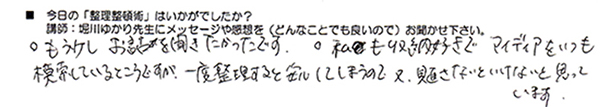 ■ 今日の「整理整頓術」はいかがでしたか?
講師:堀川ゆかり先生にメッセージや感想を(どんなことでも良いので)お聞かせ下さい。
○もう少しお話を聞きたかったです。 ○私も収納好きでアイディアをいつも
模索しているところですが、一度整理すると安心してしまうので又、見直さないといけないと思って
います。